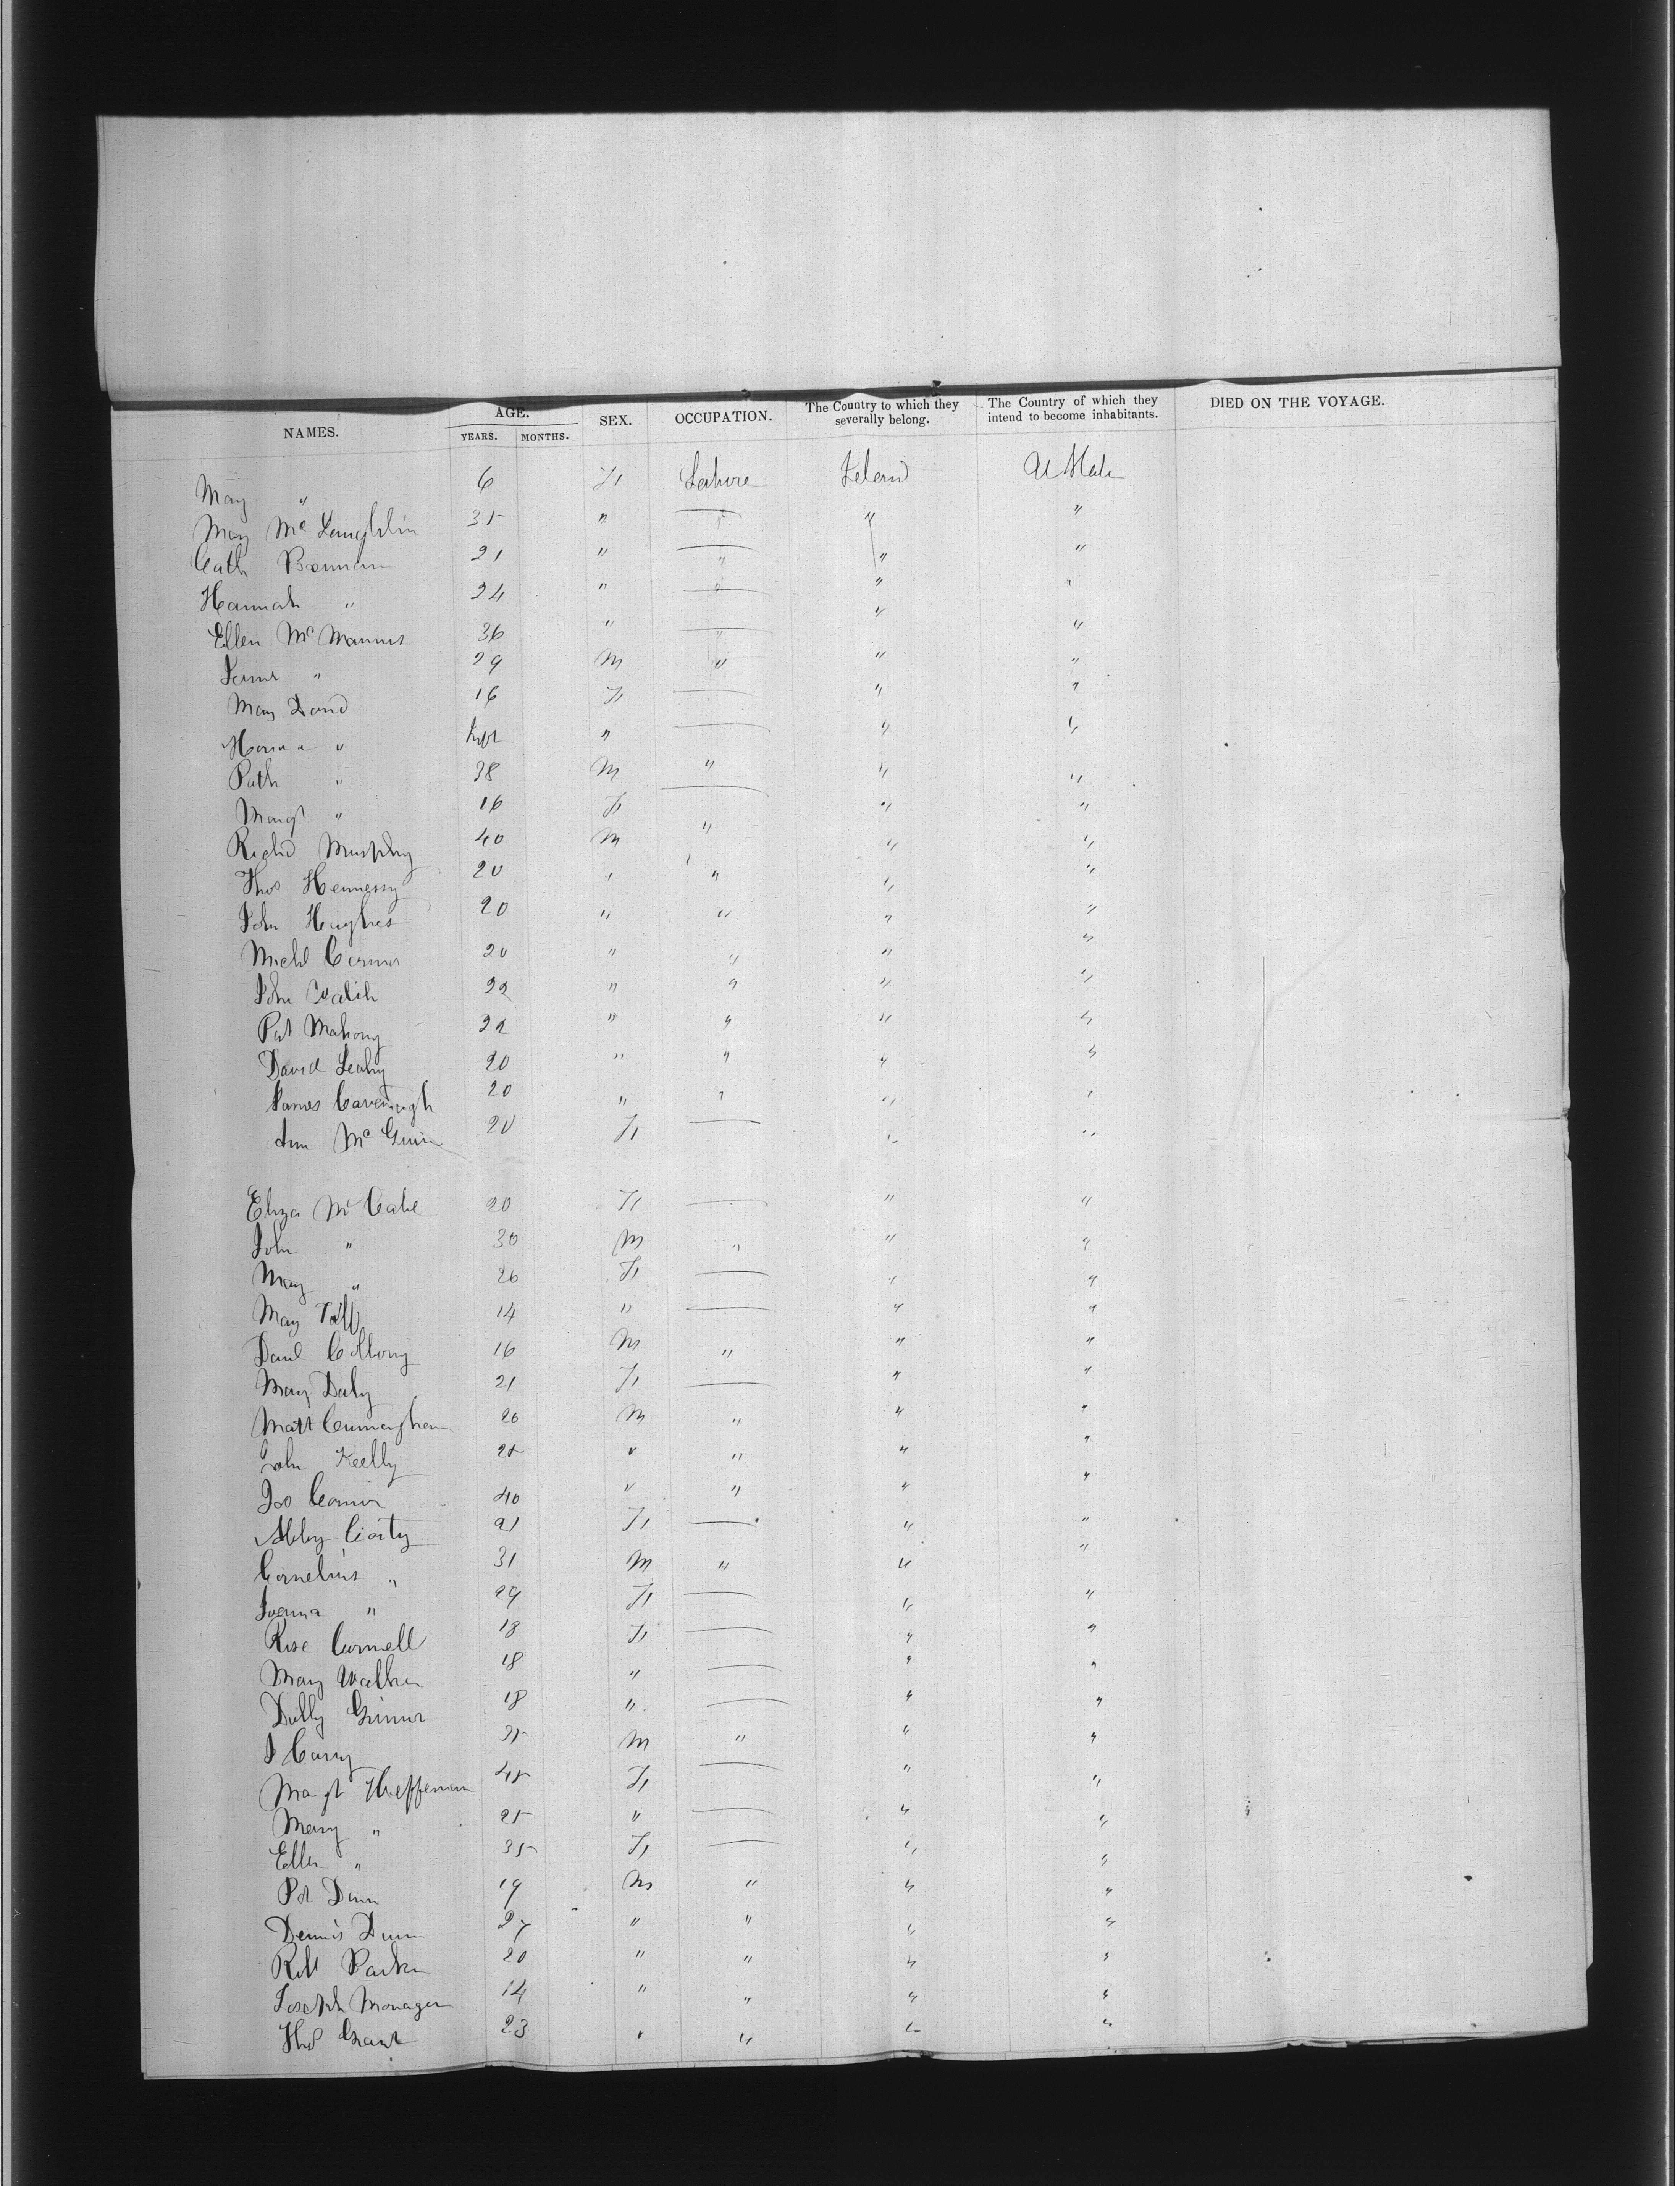 NAMES. AGE. YEARS. MONTHS. SEX. OCCUPATION. The Country to which they severally belong. The Country of which they intend to become inhabitants. DIED ON THE VOYAGE.
Mary " 6 F
Mary McLaughlin 35 " — " "
Cath 21 " — " "
Hannah " 24 " — " "
Ellen McMannus 36 " — " "
" 29 M " " "
Mary 16 F — " "
" " — " "
Patk " 38 M " " "
Margt " 16 F — " "
Richd Murphy 40 M " " "
Thos Hennessy 20 " " " "
John Hughes 20 " " " "
Michl Connor 20 " " " "
John Walsh 22 " " " "
Pat Mahony 22 " " " "
David Leahy 20 " " " "
James Cavenaugh 20 " " " "
Ann McGuire 20 F — " "
Eliza McCabe 20 F — " "
John " 30 M " " "
Mary " 26 F — " "
Mary 14 " — " "
Danl 16 M " " "
Mary Daly 21 F — " "
Matt Cunningham 26 M " " "
John Kelly 25 " " " "
Jos Connor 40 " " " "
Abby Carty 21 F — " "
Cornelius " 31 M " " "
Joanna " 29 F — " "
Rose Connell 18 F — " "
Mary Walker 18 " — " "
18 " — " "
J Carry 35 M " " "
Margt Heffernan 45 F — " "
Mary " 25 " — " "
Ellen " 35 F — " "
Pat Dunn 19 M " " "
Dennis Dunn 27 " " " "
Robt Parker 20 " " " "
Joseph Monagan 14 " " " "
Thos Grant 23 " " " "